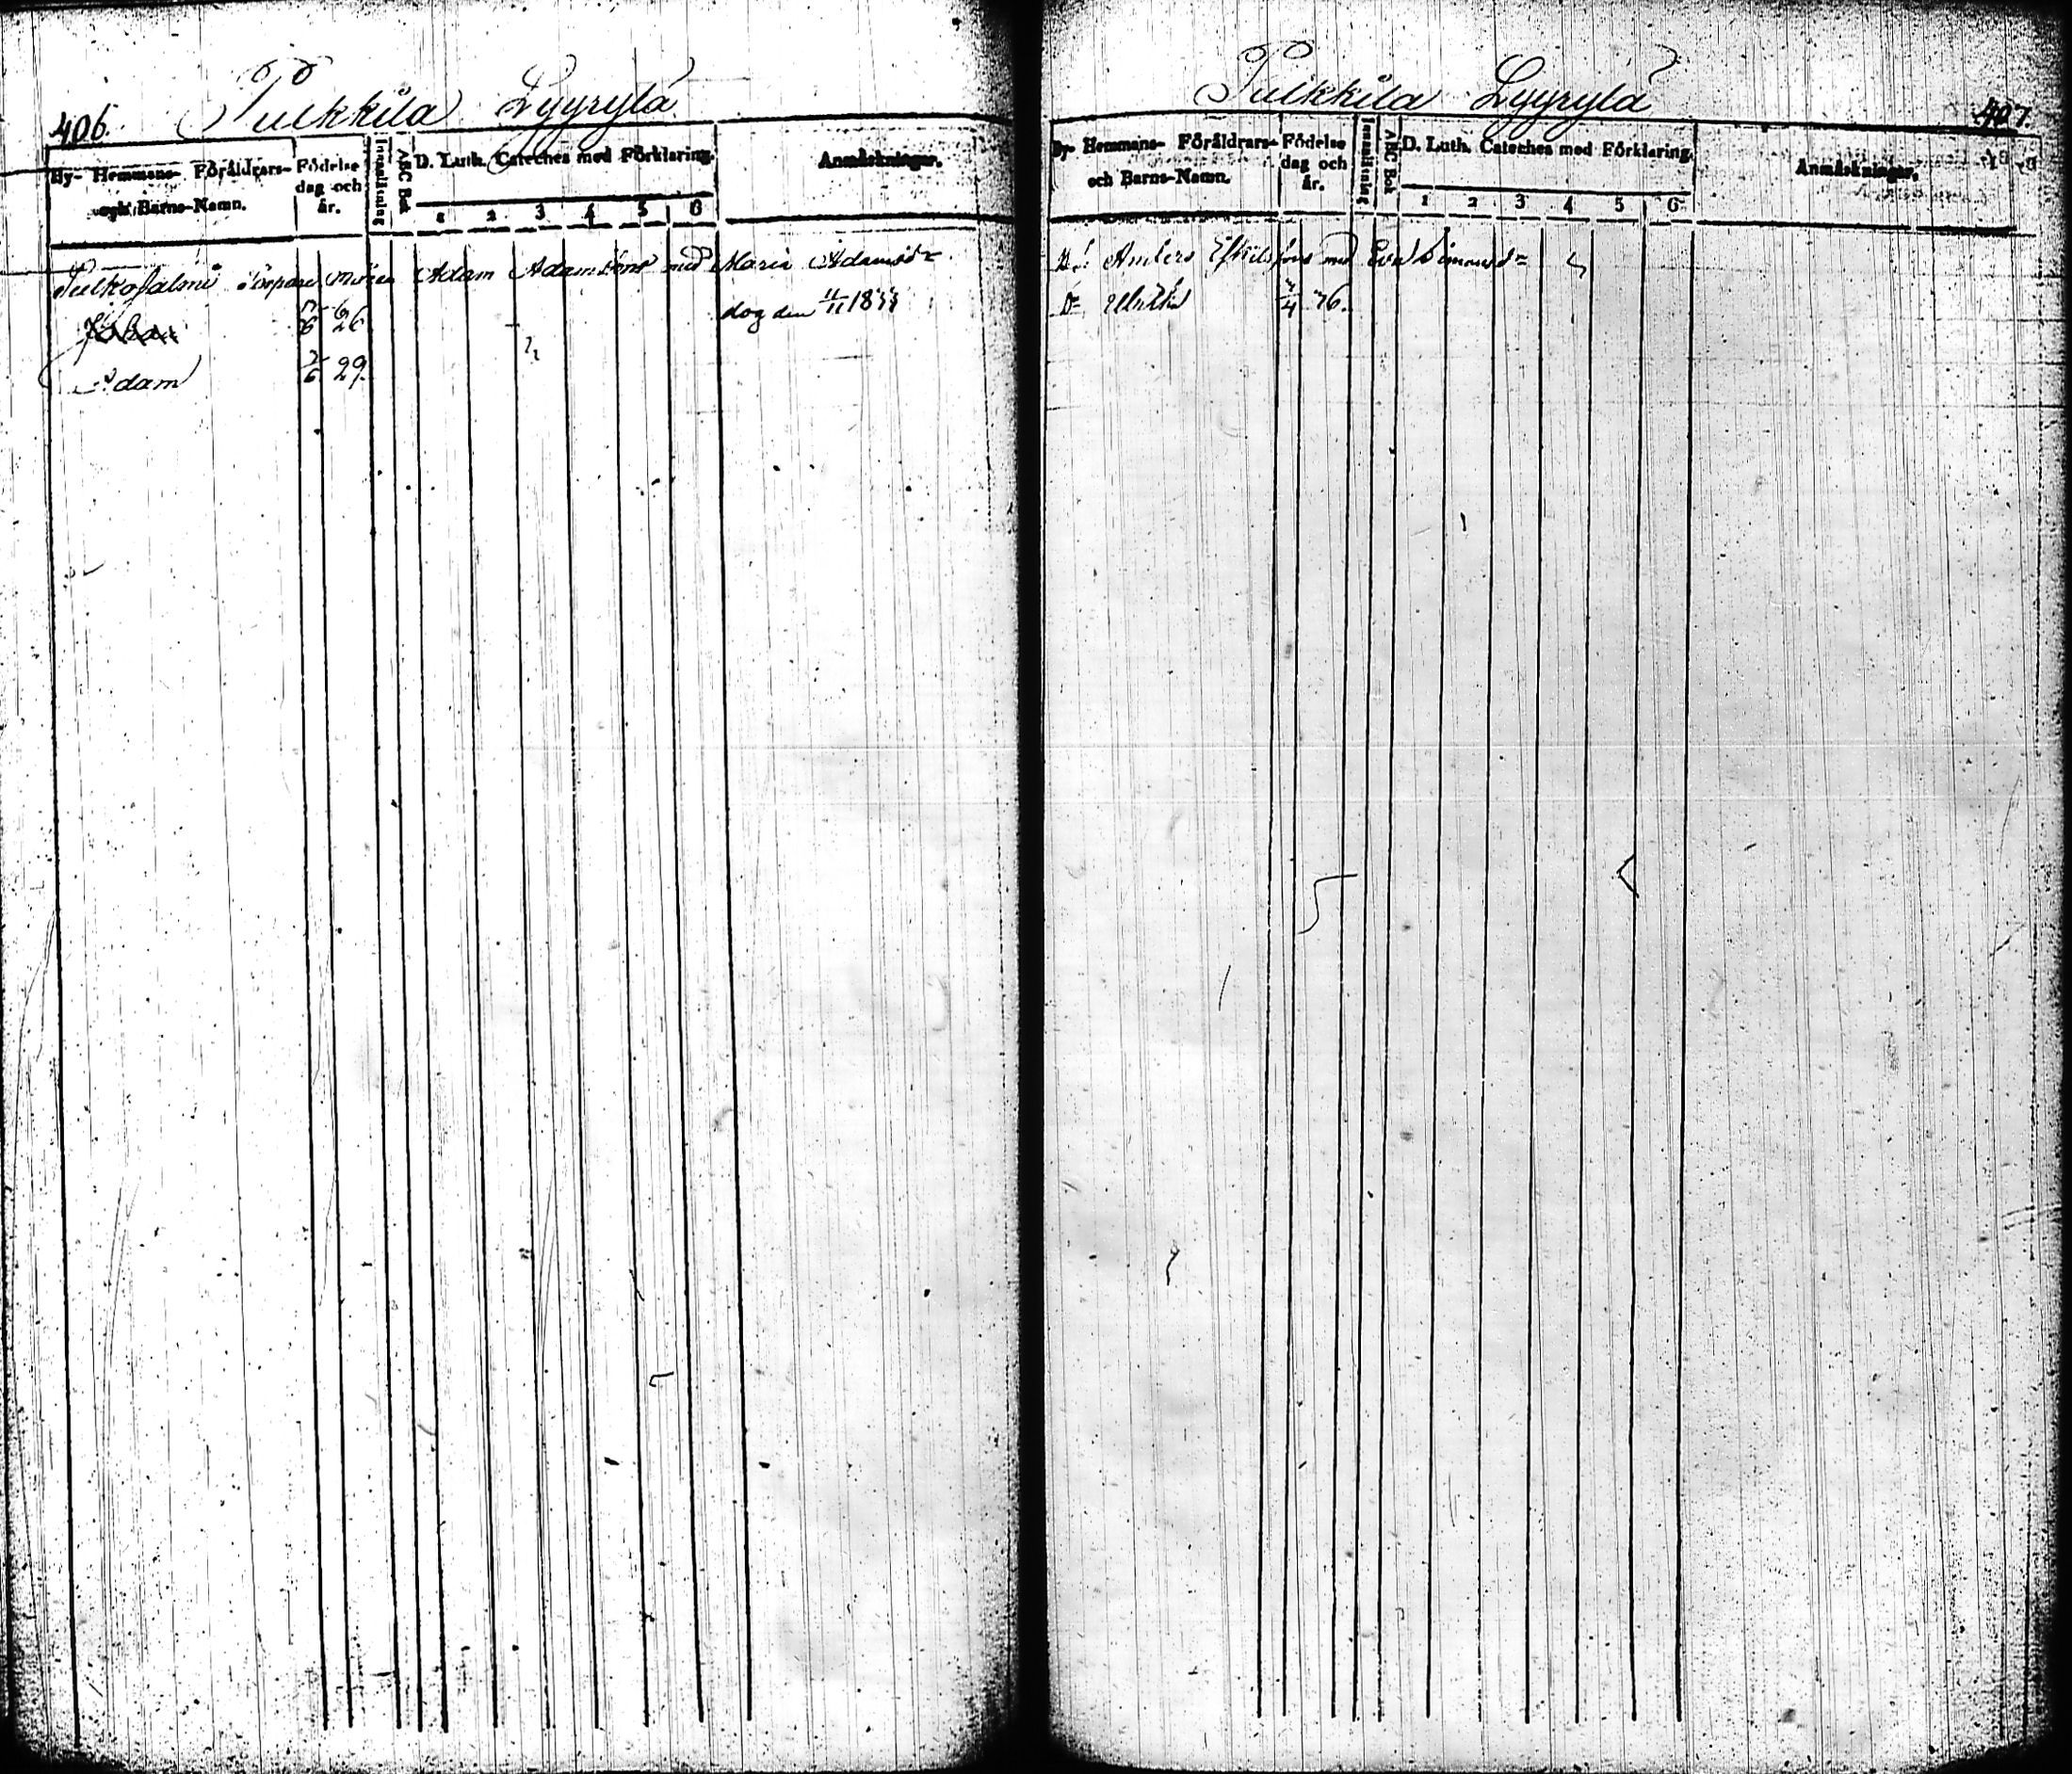 406.
Pulkkila Lyyrylä
By- Hemmans- Föräldrars- och Barns-Namn.
Födelse dag och år.
Innanläsning
ABC Bok
D. Luth. Cateches med Förklaring.
1 2 3 4 5 6
Anmärkningar.
Adam Adamsons med Maria Adamsdr
Johan 6 26 dog den 11/11
Adam 2/6 29.
407.
Pulkkila Lyyrylä
By- Hemmans- Föräldrars- och Barns-Namn.
Födelse dag och år.
Innanläsning
ABC Bok
D. Luth. Cateches med Förklaring.
1 2 3 4 5 6
Anmärkningar.
Anders Eskils sons med Eva Simonsdr
Dr Ulrika